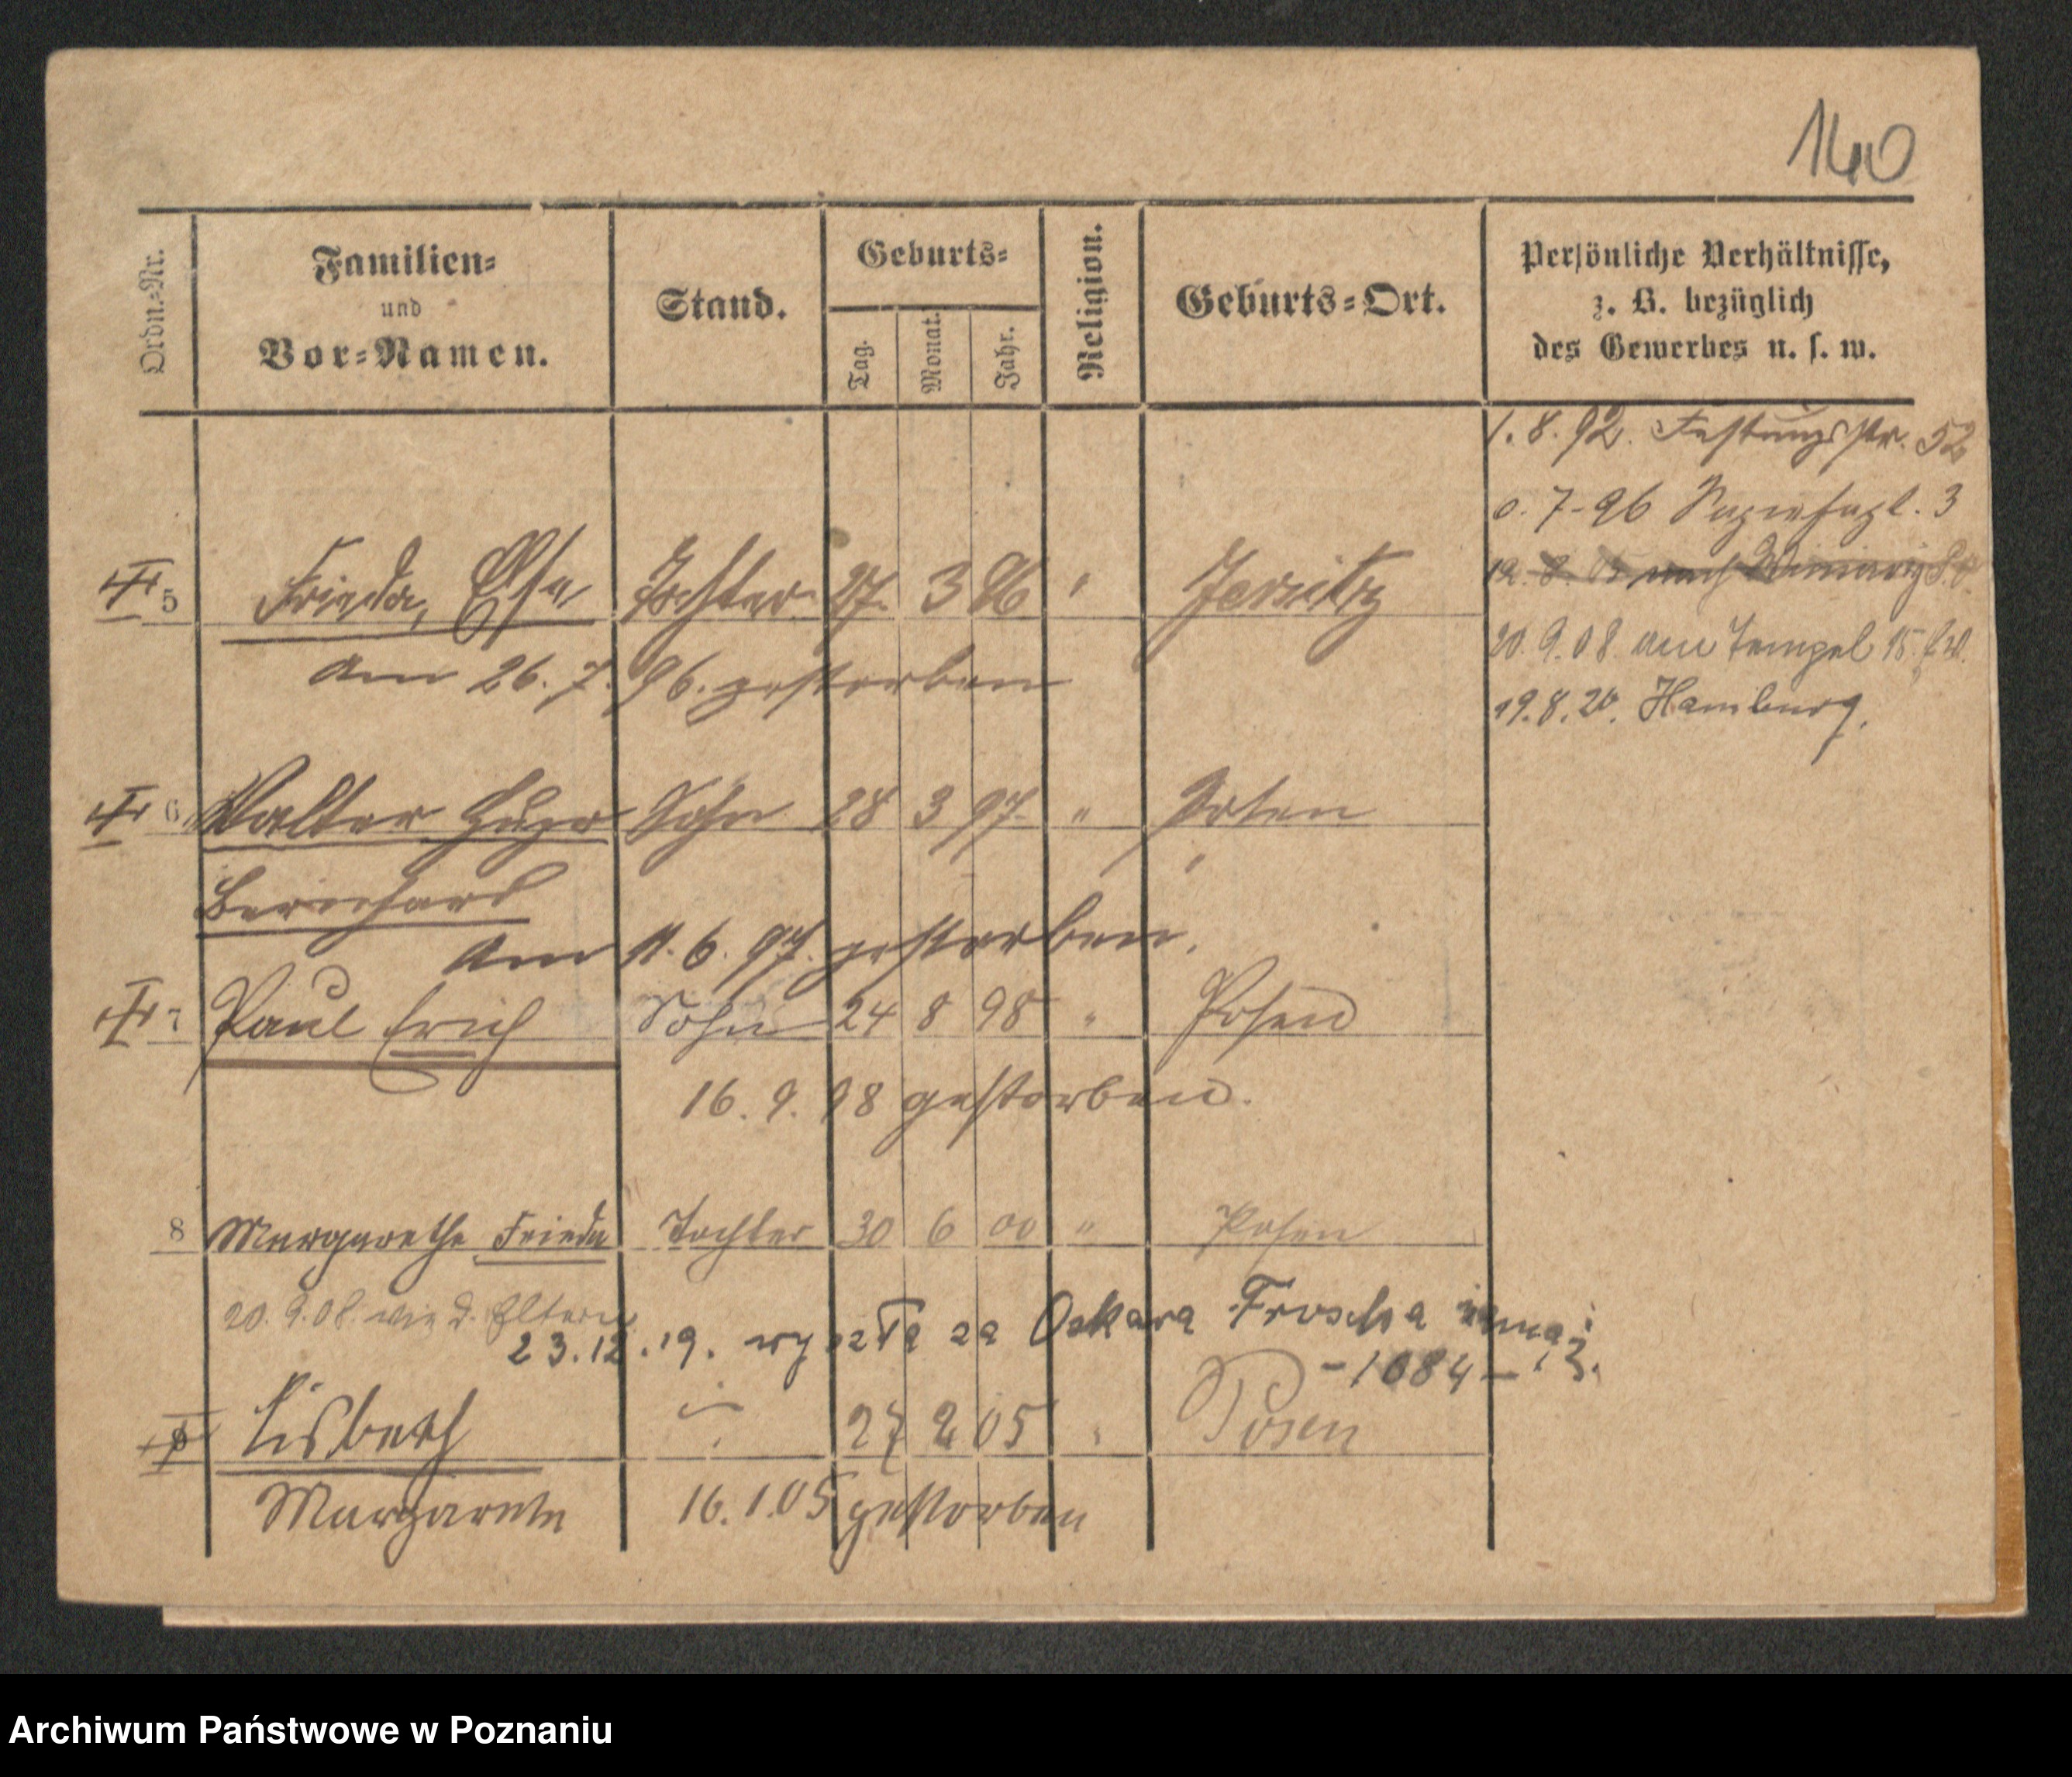 140
Ordn.-Nr.
Familien-
und
Vor-Namen.
Stand.
Geburts-
Tag.
Monat.
Jahr.
Religion.
Geburts-Ort.
Persönliche Verhältnisse,
z. B. bezüglich
des Gewerbes u. s. w.
1.8.92. Festungsstr. 52
0.7-96 3
nach
5 Frieda, Else, Tochter 27. 3 96 " Jersitz
20.9.08 am Tempel 15.
am 26.7.96. gestorben
19.8.20. Hamburg.
6 Walter Hugo Sohn 28 3 97. " Posen
Bernhard
am 11.6.97. gestorben.
7 Paul Erich Sohn 24 8 98 " Posen
16.9.98 gestorben.
8 Margarethe Frieda Tochter 30 6 00 " Posen
20.9.08. wie d. Eltern
23.12.19. wyszła za Oskara Froscha
-1084-
Lisbeth 27 2 05 " Posen
Margarete 16.1.05 gestorben
Archiwum Państwowe w Poznaniu